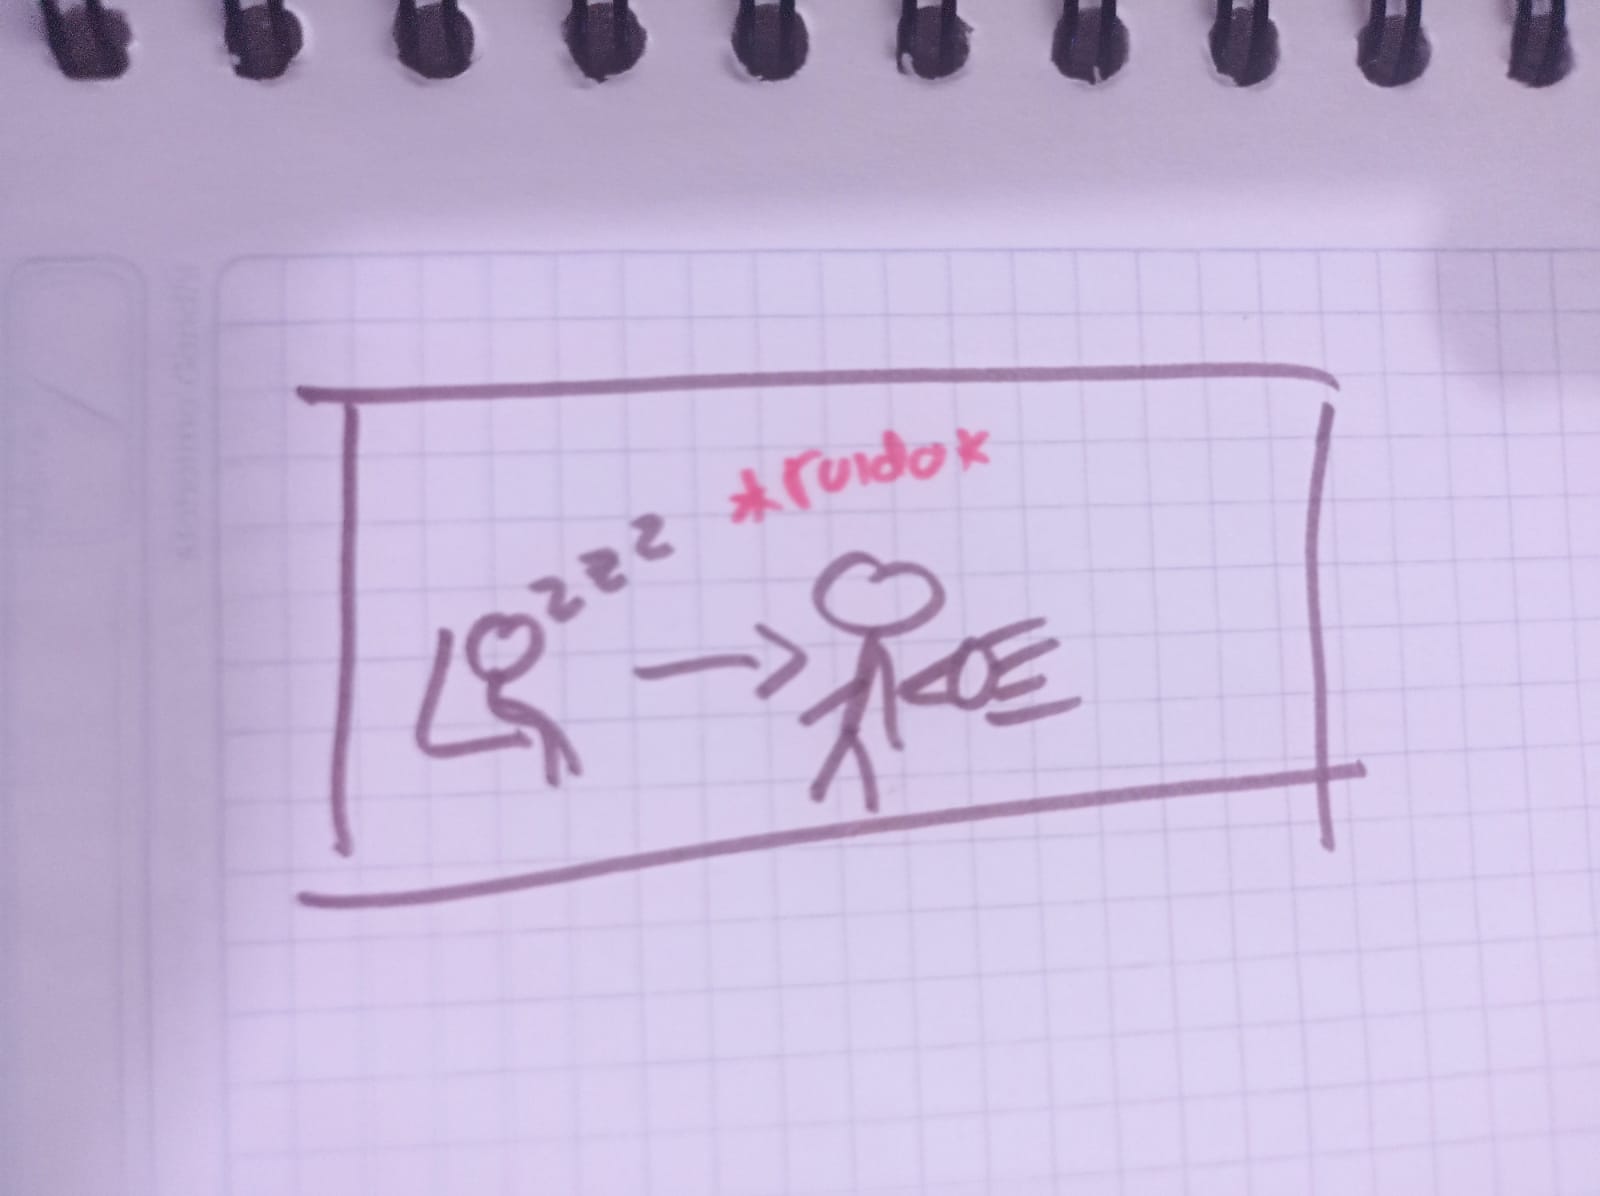 *ruido*
zzz